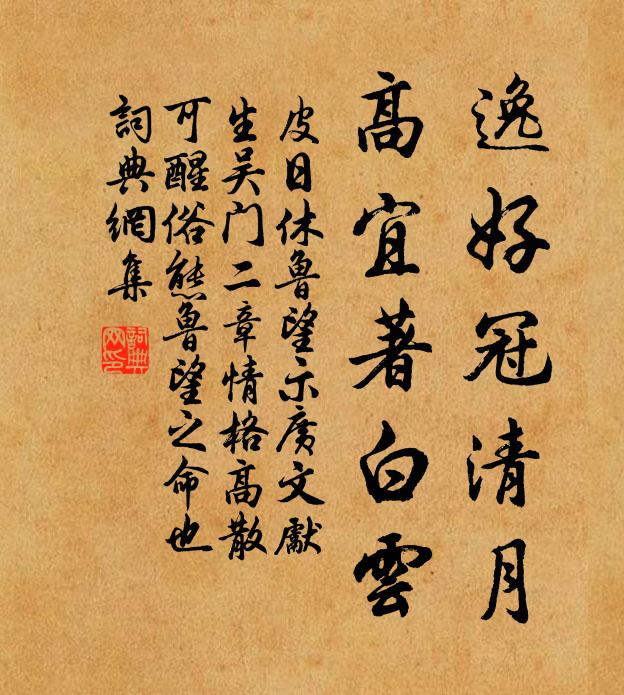 逸好冠清月
高宜著白雲
皮日休魯望示廣文獻
生吴门二章情格高散
可醒俗態魯望之命也
詞典網集
詞典網印